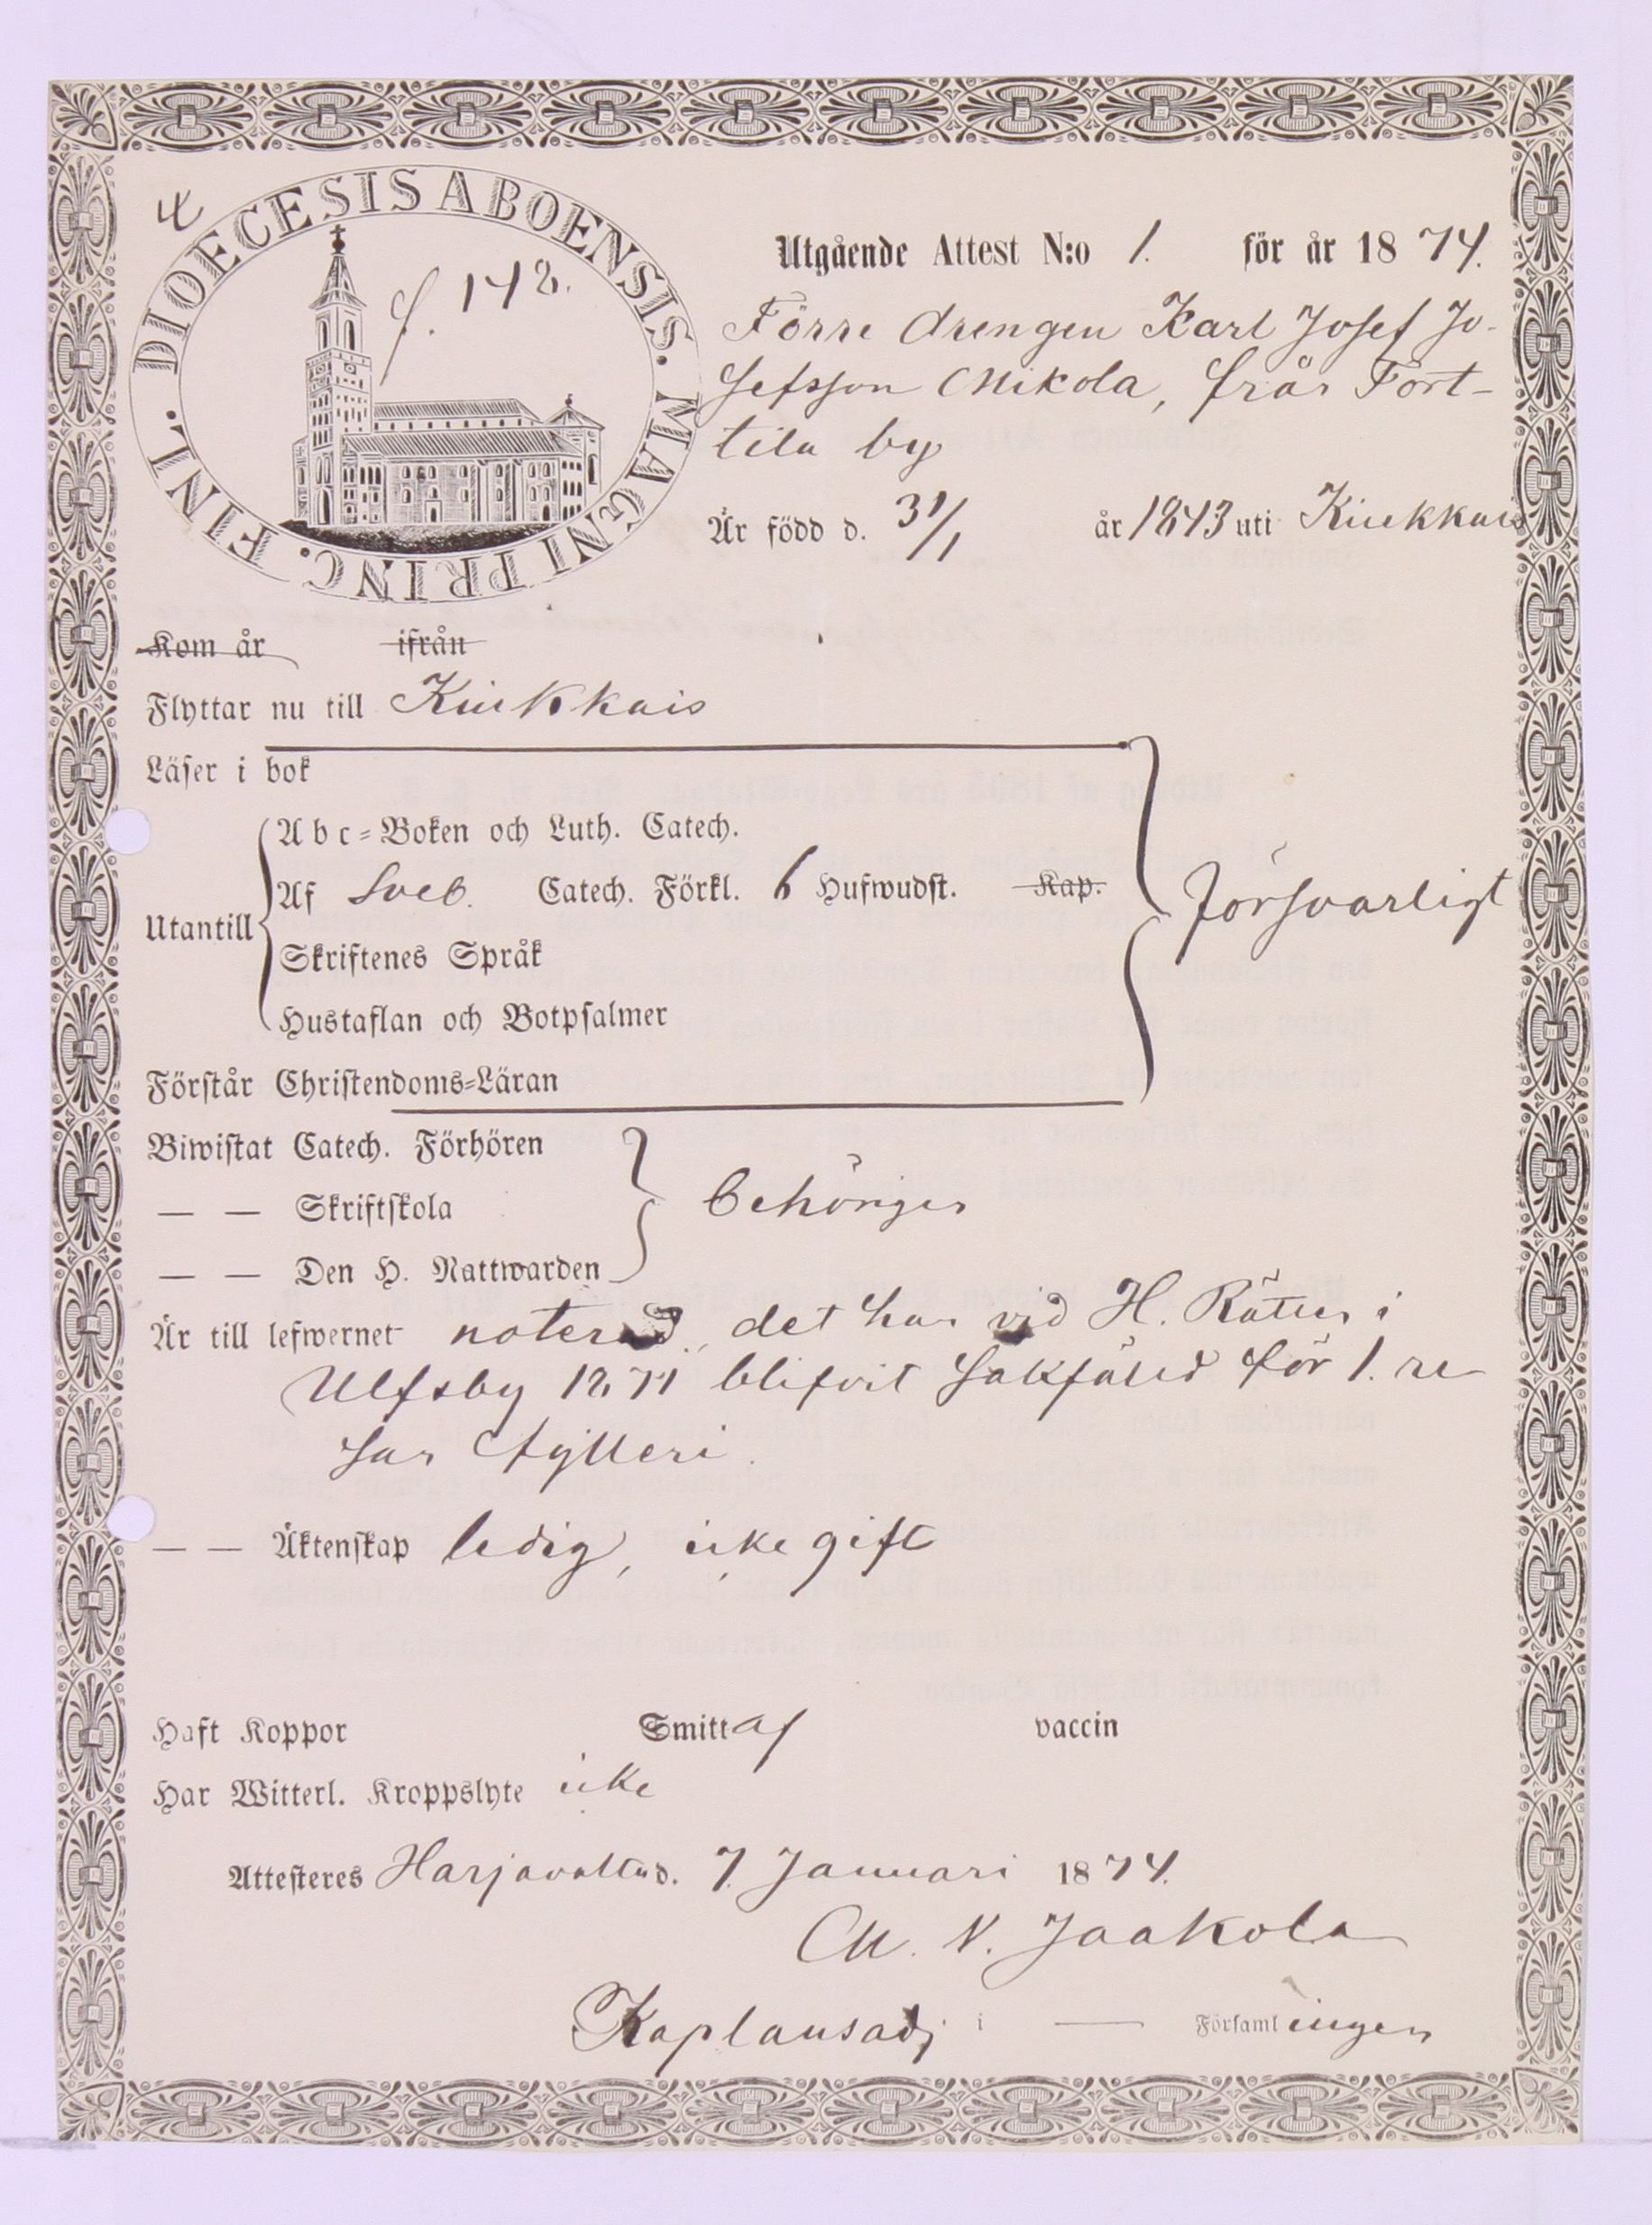 4
DIOECESIS ABOENSIS. MAGNI PRINC. FINL.
f. 148.
Utgående Attest N:o 1. för år 1874.
Förre drengen Karl Josef Jo-
sefsson Mikola, från Tort-
tila by
Är född d. 31/1 år 1843 uti Kiukkais
Kom år ifrån
Flyttar nu till Kiukkais
Läser i bok
Abc=Boken och Luth. Catech.
Utantill Af Sveb. Catech. Förkl. 6 Hufwudst. Kap. försvarligt
Skriftenes Språk
Hustaflan och Botpsalmer
Förstår Christendoms=Läran
Biwistat Catech. Förhören
— — Skriftskola behörigen
— — Den H. Nattwarden
Är till lefwernet noterad, det han vid H. Rätten i
Ulfsby 1871 blifvit sakfäld för 1. re
san fylleri.
— — Äktenskap ledig, icke gift
Haft Koppor Smittaf vaccin
Har Witterl. Kroppslyte icke
Attesteres Harjavalta d. 7. Januari 1874.
M. V. Jaakola
Kaplansadj i — Församlingen